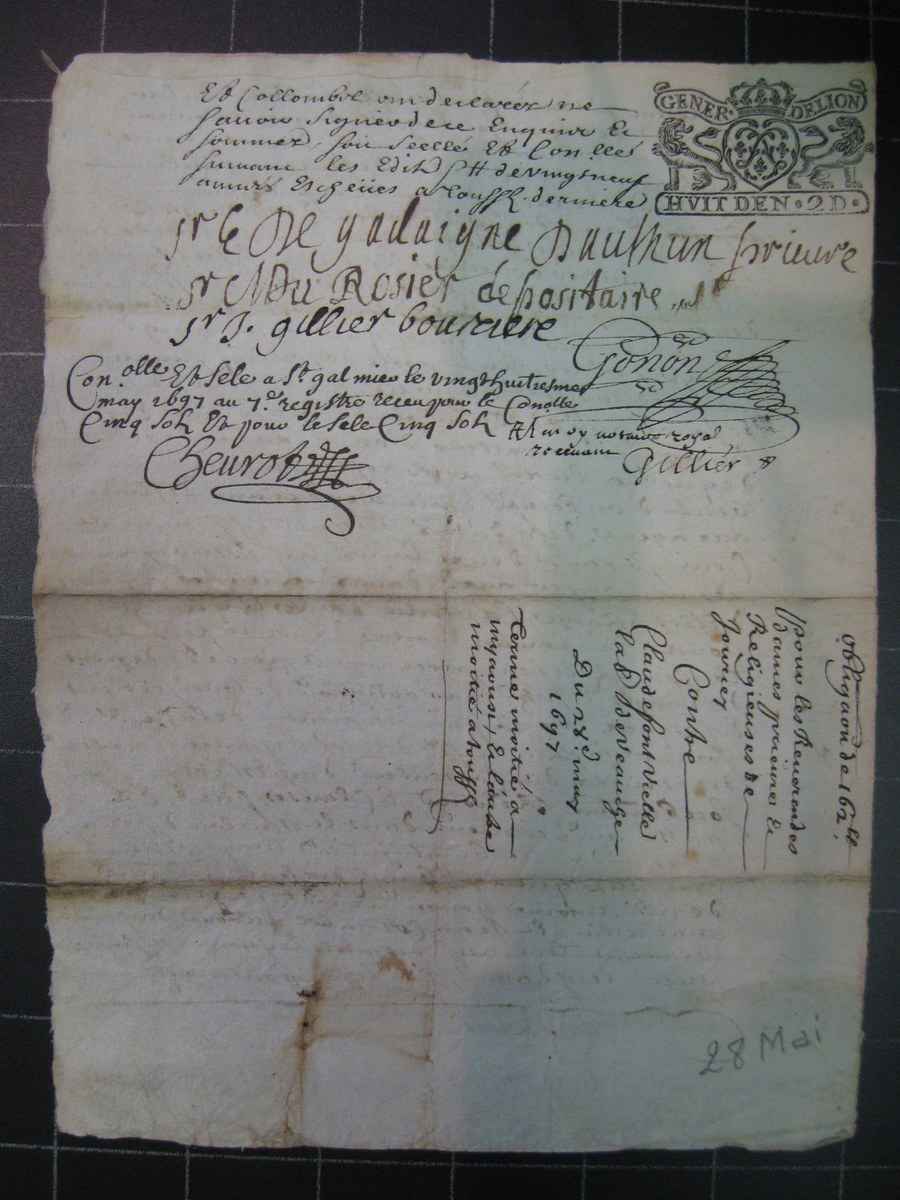 Et Collombet ont declarés ne
sauoir signer de ce Enquis et
sommez, soit seellé Et Con.llés
suiuant les Edits de vingt neuf
annees Escheües a touss.ts derniere
GENER. DELION
HVIT DEN. 2 D.
sr C De gadaigne Dauthun prieure
sr M Du Rosier depositaire
sr J. gillier bourciere
Gonon
Con.olle Et selé a St galmier le vingthuitiesme
may 1697 au 7e registre receu pour le Conolle
Cinq sols Et pour le selé Cinq sols
Cheurot
Et moy notaire royal
receuant Gillier
obligaon de 162 ll.
pour les Reuerendes
dames prieures &
Religieuses de
Joursey
Contre
Claude fontvielle
la P de Veauche
Du 28e. may
1697
terme moitié a
& l'autre
moitié a touss.ts
28 Mai